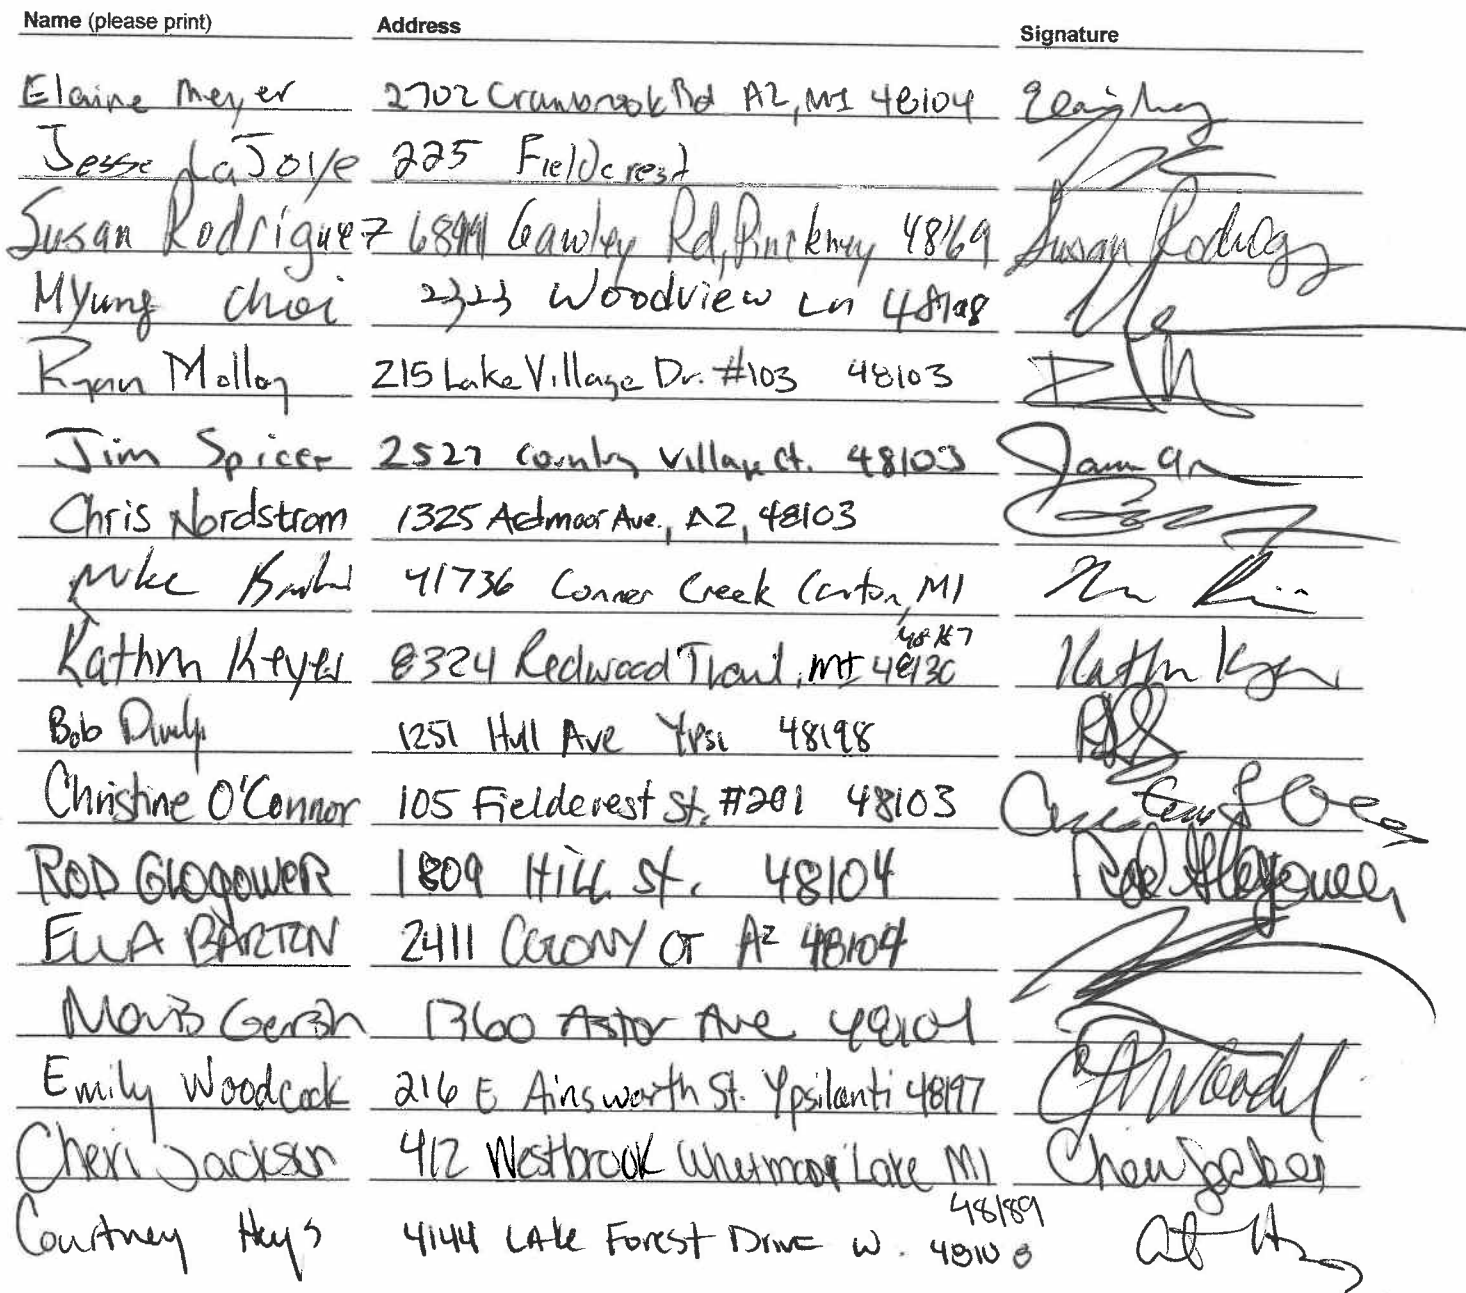 Name (please print) Address Signature
Elaine Meyer 2702 Cranbrook Rd A2, MI 48104
Jesse LaJoye 225 Fieldcrest
Susan Rodriguez Gawley Rd, Pinckney 48169 Susan Rodriguez
Myung Choi 2323 Woodview Ln
Ryan Molloy 215 Lake Village Dr. #103 48103
Jim Spicer 2527 Country Village Ct. 48103
Chris Nordstrom 1325 Ardmoor Ave., A2, 48103
Mike 41736 Conner Creek Canton, MI
48187
Kathryn Keyer 8324 Redwood Trail, MI
Bob 1251 Hull Ave Ypsi 48198
Christine O'Connor 105 Fieldcrest St. #201 48103
ROD GLOGOWER 1809 HILL St. 48104 Rod Glogower
ELLA BARTON 2411 COLONY CT A2 48104
Gersh 1360 Astor Ave 48104
Emily Woodcock 216 E Ainsworth St. Ypsilanti 48197
Cheri Jackson 412 Westbrook Whitmore Lake MI
48189
Courtney Heys 4144 LAke Forest Drive W. 48108